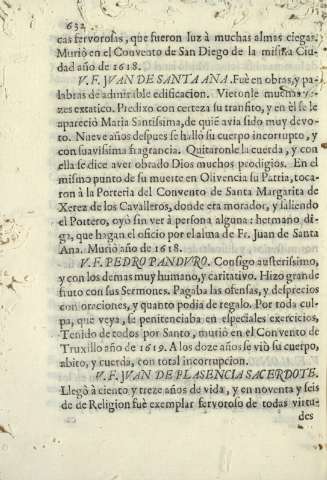 632
cas fervorosas, que fueron luz à muchas almas ciegas.
Muriò en el Convento de San Diego de la misma Ciu-
dad año de 1618.
V. F. JVAN DE SANTA ANA. Fuè en obras, y pa-
labras de admirible edificacion. Vieronle muchas ve-
zes extatico. Predixo con certeza su transito, y en èl se le
apareciò Maria Santissima, de quiè avia sido muy devo-
to. Nueve años despues se hallò su cuerpo incorrupto, y
con suavissima fragrancia. Quitaronle la cuerda, y con
ella se dice aver obrado Dios muchos prodigios. En el
mismo punto de su muerte en Olivencia su Patria, toca-
ron à la Porteria del Convento de Santa Margarita de
Xerez de los Cavalleros, donde era morador, y saliendo
el Portero, oyò sin ver à persona alguna: hermano di-
ga, que hagan el oficio por el alma de Fr. Juan de Santa
Ana. Muriò año de 1618.
V. F. PEDRO PANDVRO. Consigo austerissimo,
y con los demas muy humano, y caritativo. Hizo grande
fruto con sus Sermones. Pagaba las ofensas, y desprecios
con oraciones, y quanto podia de regalo. Por toda cul-
pa, que veya, se penitenciaba en especiales exercicios,
Tenido de todos por Santo, muriò en el Convento de
Truxillo año de 1619. A los doze años se viò su cuerpo,
abito, y cuerda, con total incorrupcion.
V. F. JVAN DE PLASENCIA SACERDOTE.
Llegò à ciento y treze años de vida, y en noventa y seis
de de Religion fuè exemplar fervoroso de todas virtu-
des